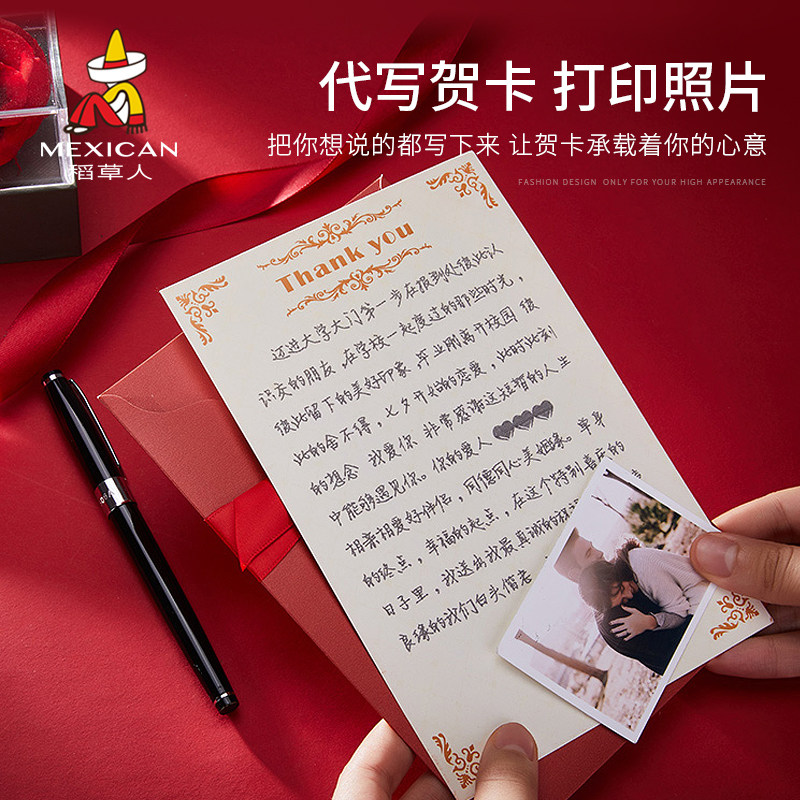 MEXICAN
稻草人
代写贺卡 打印照片
把你想说的都写下来 让贺卡承载着你的心意
FASHION DESIGN ONLY FOR YOUR HIGH APPEARANCE
Thank you
迈进大学大门第一步在报到处彼此认
识交的朋友,在学校一起度过的那些时光,
彼此留下的美好印象,毕业刚离开校园 彼
此的舍不得,七夕开始的恋爱,此时此刻
的想念 我爱你 非常感谢这短暂的人生
中能够遇见你。你的爱人
相亲相爱好伴侣,同德同心美姻缘。单身
的终点,幸福的起点,在这个特别喜庆的
日子里,我送出我最真诚的祝
良缘的我们白头偕老